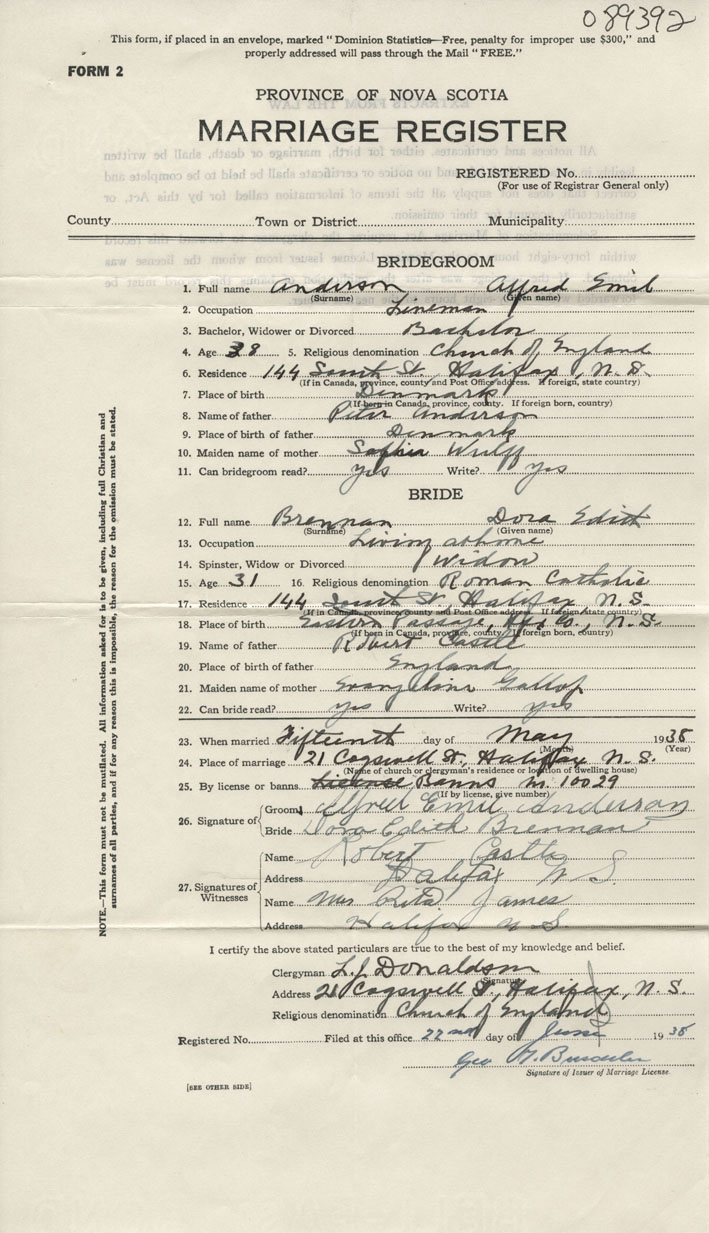 089392
This form, if placed in an envelope, marked "Dominion Statistics—Free, penalty for improper use $300," and
properly addressed will pass through the Mail "FREE."
FORM 2
PROVINCE OF NOVA SCOTIA
MARRIAGE REGISTER
REGISTERED No.
(For use of Registrar General only)
County Town or District Municipality
BRIDEGROOM
1. Full name Anderson Alfred Emil
(Surname) (Given name)
2. Occupation Lineman
3. Bachelor, Widower or Divorced Bachelor
4. Age 38 5. Religious denomination Church of England
6. Residence 144 South St., Halifax, N.S.
(If in Canada, province, county and Post Office address. If foreign, state country)
7. Place of birth Denmark
(If born in Canada, province, county. If foreign born, country)
8. Name of father Peter Anderson
9. Place of birth of father Denmark
10. Maiden name of mother Sophia Wulff
11. Can bridegroom read? yes Write? yes
BRIDE
12. Full name Brennan Dora Edith
(Surname) (Given name)
13. Occupation Living at home
14. Spinster, Widow or Divorced Widow
15. Age 31 16. Religious denomination Roman Catholic
17. Residence 144 South St., Halifax, N.S.
(If in Canada, province, county and Post Office address. If foreign, state country)
18. Place of birth Eastern Passage, Hfx Co., N.S.
(If born in Canada, province, county. If foreign born, country)
19. Name of father Robert Castle
20. Place of birth of father England
21. Maiden name of mother Evangeline Gallop
22. Can bride read? yes Write? yes
23. When married Fifteenth day of May 1938
(Month) (Year)
24. Place of marriage 21 Cogswell St., Halifax N.S.
(Name of church or clergyman's residence or location of dwelling house)
25. By license or banns License Banns No. 10029
(If by license, give number)
26. Signature of Groom Alfred Emil Anderson
Bride Dora Edith Brennan
27. Signatures of Witnesses
Name Robert Castle
Address Halifax N S
Name Mrs Rita James
Address Halifax N.S.
I certify the above stated particulars are true to the best of my knowledge and belief.
Clergyman L.J. Donaldson
(Signature)
Address 21 Cogswell St., Halifax, N.S.
Religious denomination Church of England
Registered No. Filed at this office 22nd day of June 1938
Geo
Signature of Issuer of Marriage License
[SEE OTHER SIDE]
NOTE.—This form must not be mutilated. All information asked for is to be given, including full Christian and
surnames of all parties, and if for any reason this is impossible, the reason for the omission must be stated.